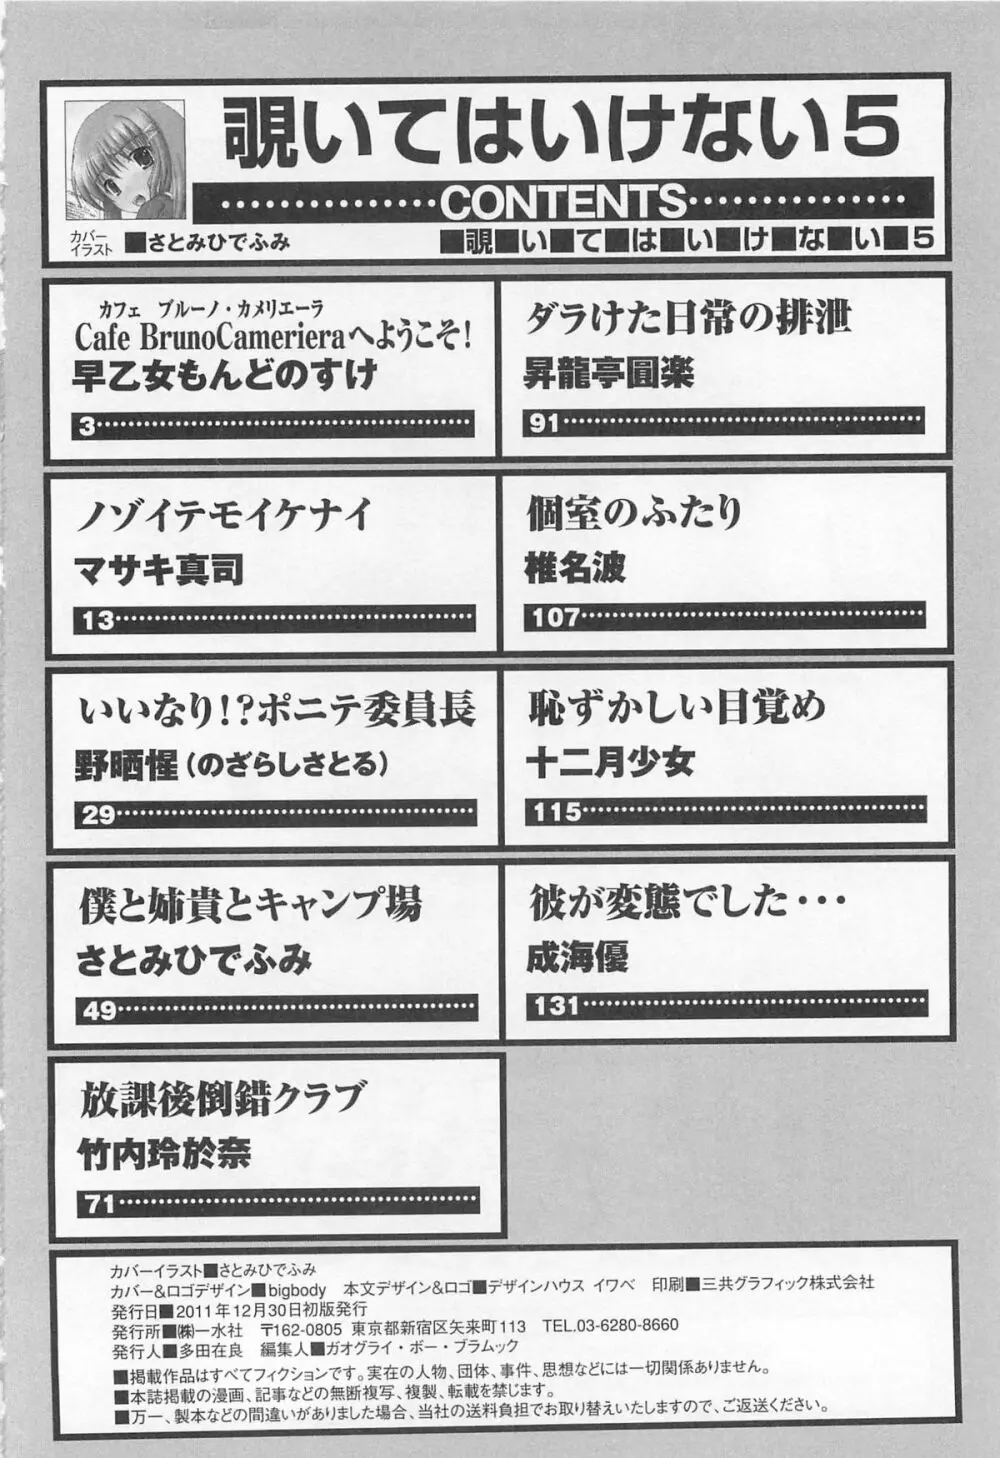 覗いてはいけない5
CONTENTS
カバー
イラスト ■さとみひでふみ
■覗■い■て■は■い■け■な■い■5
カフェ ブルーノ・カメリエーラ
Cafe BrunoCamerieraへようこそ!
早乙女もんどのすけ
3
ノゾイテモイケナイ
マサキ真司
13
いいなり!?ポニテ委員長
野晒惺(のざらしさとる)
29
僕と姉貴とキャンプ場
さとみひでふみ
49
放課後倒錯クラブ
竹内玲於奈
71
ダラけた日常の排泄
昇龍亭圓楽
91
個室のふたり
椎名波
107
恥ずかしい目覚め
十二月少女
115
彼が変態でした・・・
成海優
131
カバーイラスト■さとみひでふみ
カバー&ロゴデザイン■bigbody 本文デザイン&ロゴ■デザインハウス イワベ 印刷■三共グラフィック株式会社
発行日■2011年12月30日初版発行
発行所■㈱一水社 〒162-0805 東京都新宿区矢来町113 TEL.03-6280-8660
発行人■多田在良 編集人■ガオグライ・ボー・ブラムック
■掲載作品はすべてフィクションです。実在の人物、団体、事件、思想などには一切関係ありません。
■本誌掲載の漫画、記事などの無断複写、複製、転載を禁じます。
■万一、製本などの間違いがありました場合、当社の送料負担でお取り替えいたしますので、ご返送ください。